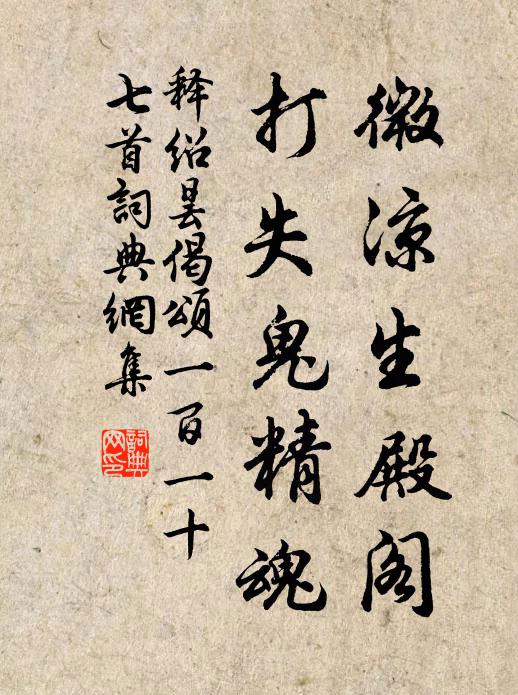 微凉生殿阁
打失鬼精魂
释绍昙偈颂一百一十
七首詞典網集
詞典网印